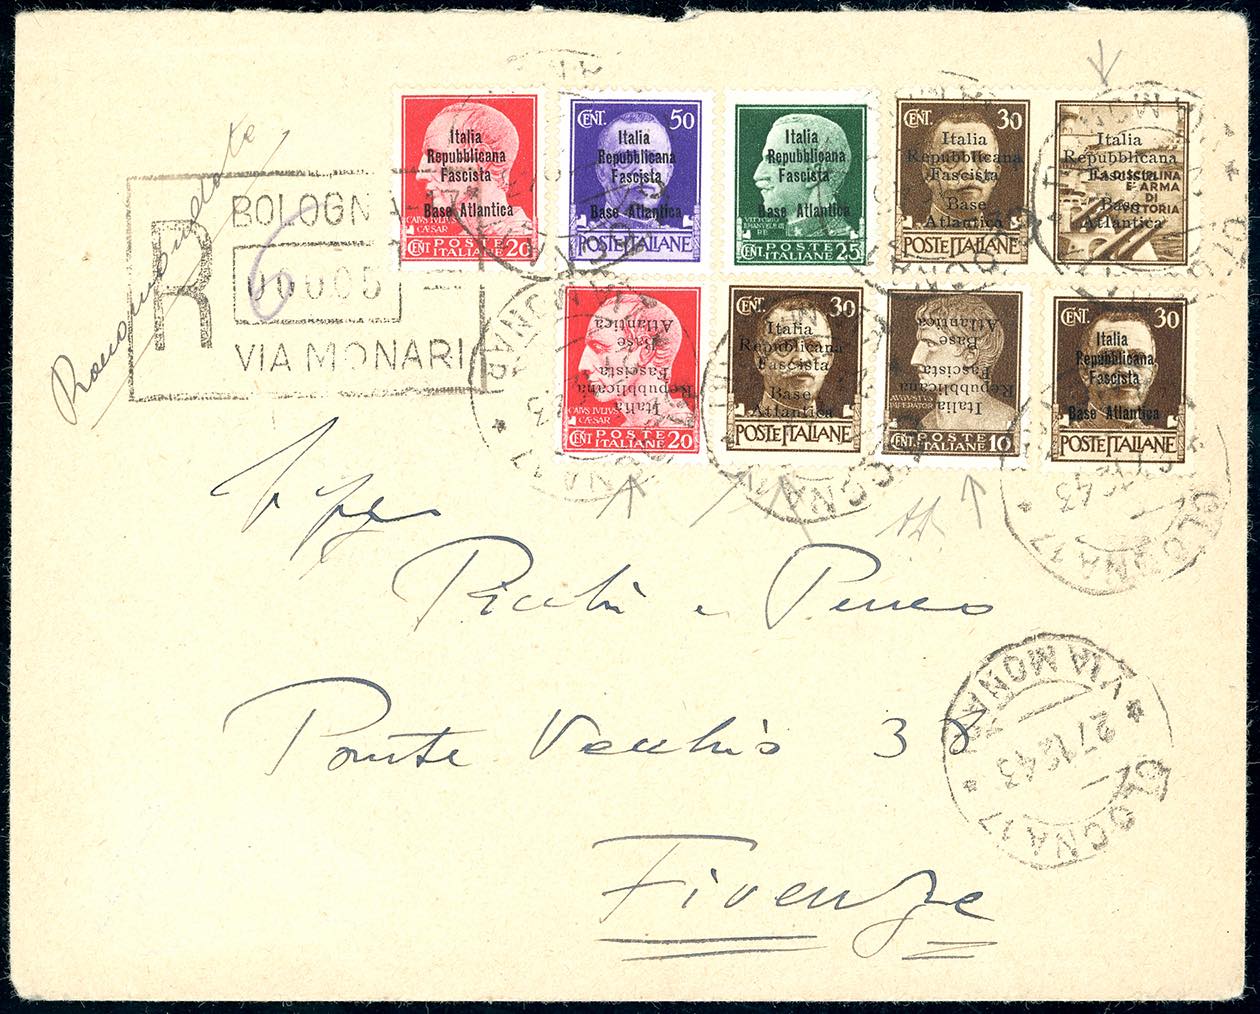 Italia
Repubblicana
Fascista
Base Atlantica
CAIVS IVLIVS
CÆSAR
CENT. POSTE ITALIANE 20
CENT. 50
Italia
Repubblicana
Fascista
Base Atlantica
POSTE ITALIANE
Italia
Repubblicana
Fascista
Base Atlantica
CENT. POSTE ITALIANE 25
CENT. 30
Italia
Repubblicana
Fascista
Base
Atlantica
POSTE ITALIANE
Italia
Repubblicana
Fascista
Base
Atlantica
LA DISCIPLINA
E ARMA
DI
VITTORIA
Raccomandata
R
BOLOGN
VIA MONARI
Italia
Repubblicana
Fascista
Base
Atlantica
CAIVS IVLIVS
CÆSAR
CENT. POSTE ITALIANE 20
CENT. 30
Italia
Repubblicana
Fascista
Base
Atlantica
POSTE ITALIANE
Italia
Repubblicana
Fascista
Base
Atlantica
AVGVSTVS
IMPERATOR
CENT. POSTE ITALIANE 10
CENT. 30
Italia
Repubblicana
Fascista
Base Atlantica
POSTE ITALIANE
e
Ponte Vecchio 38
Firenze
OLOGNA 17
VIA MONARI
27.12.43